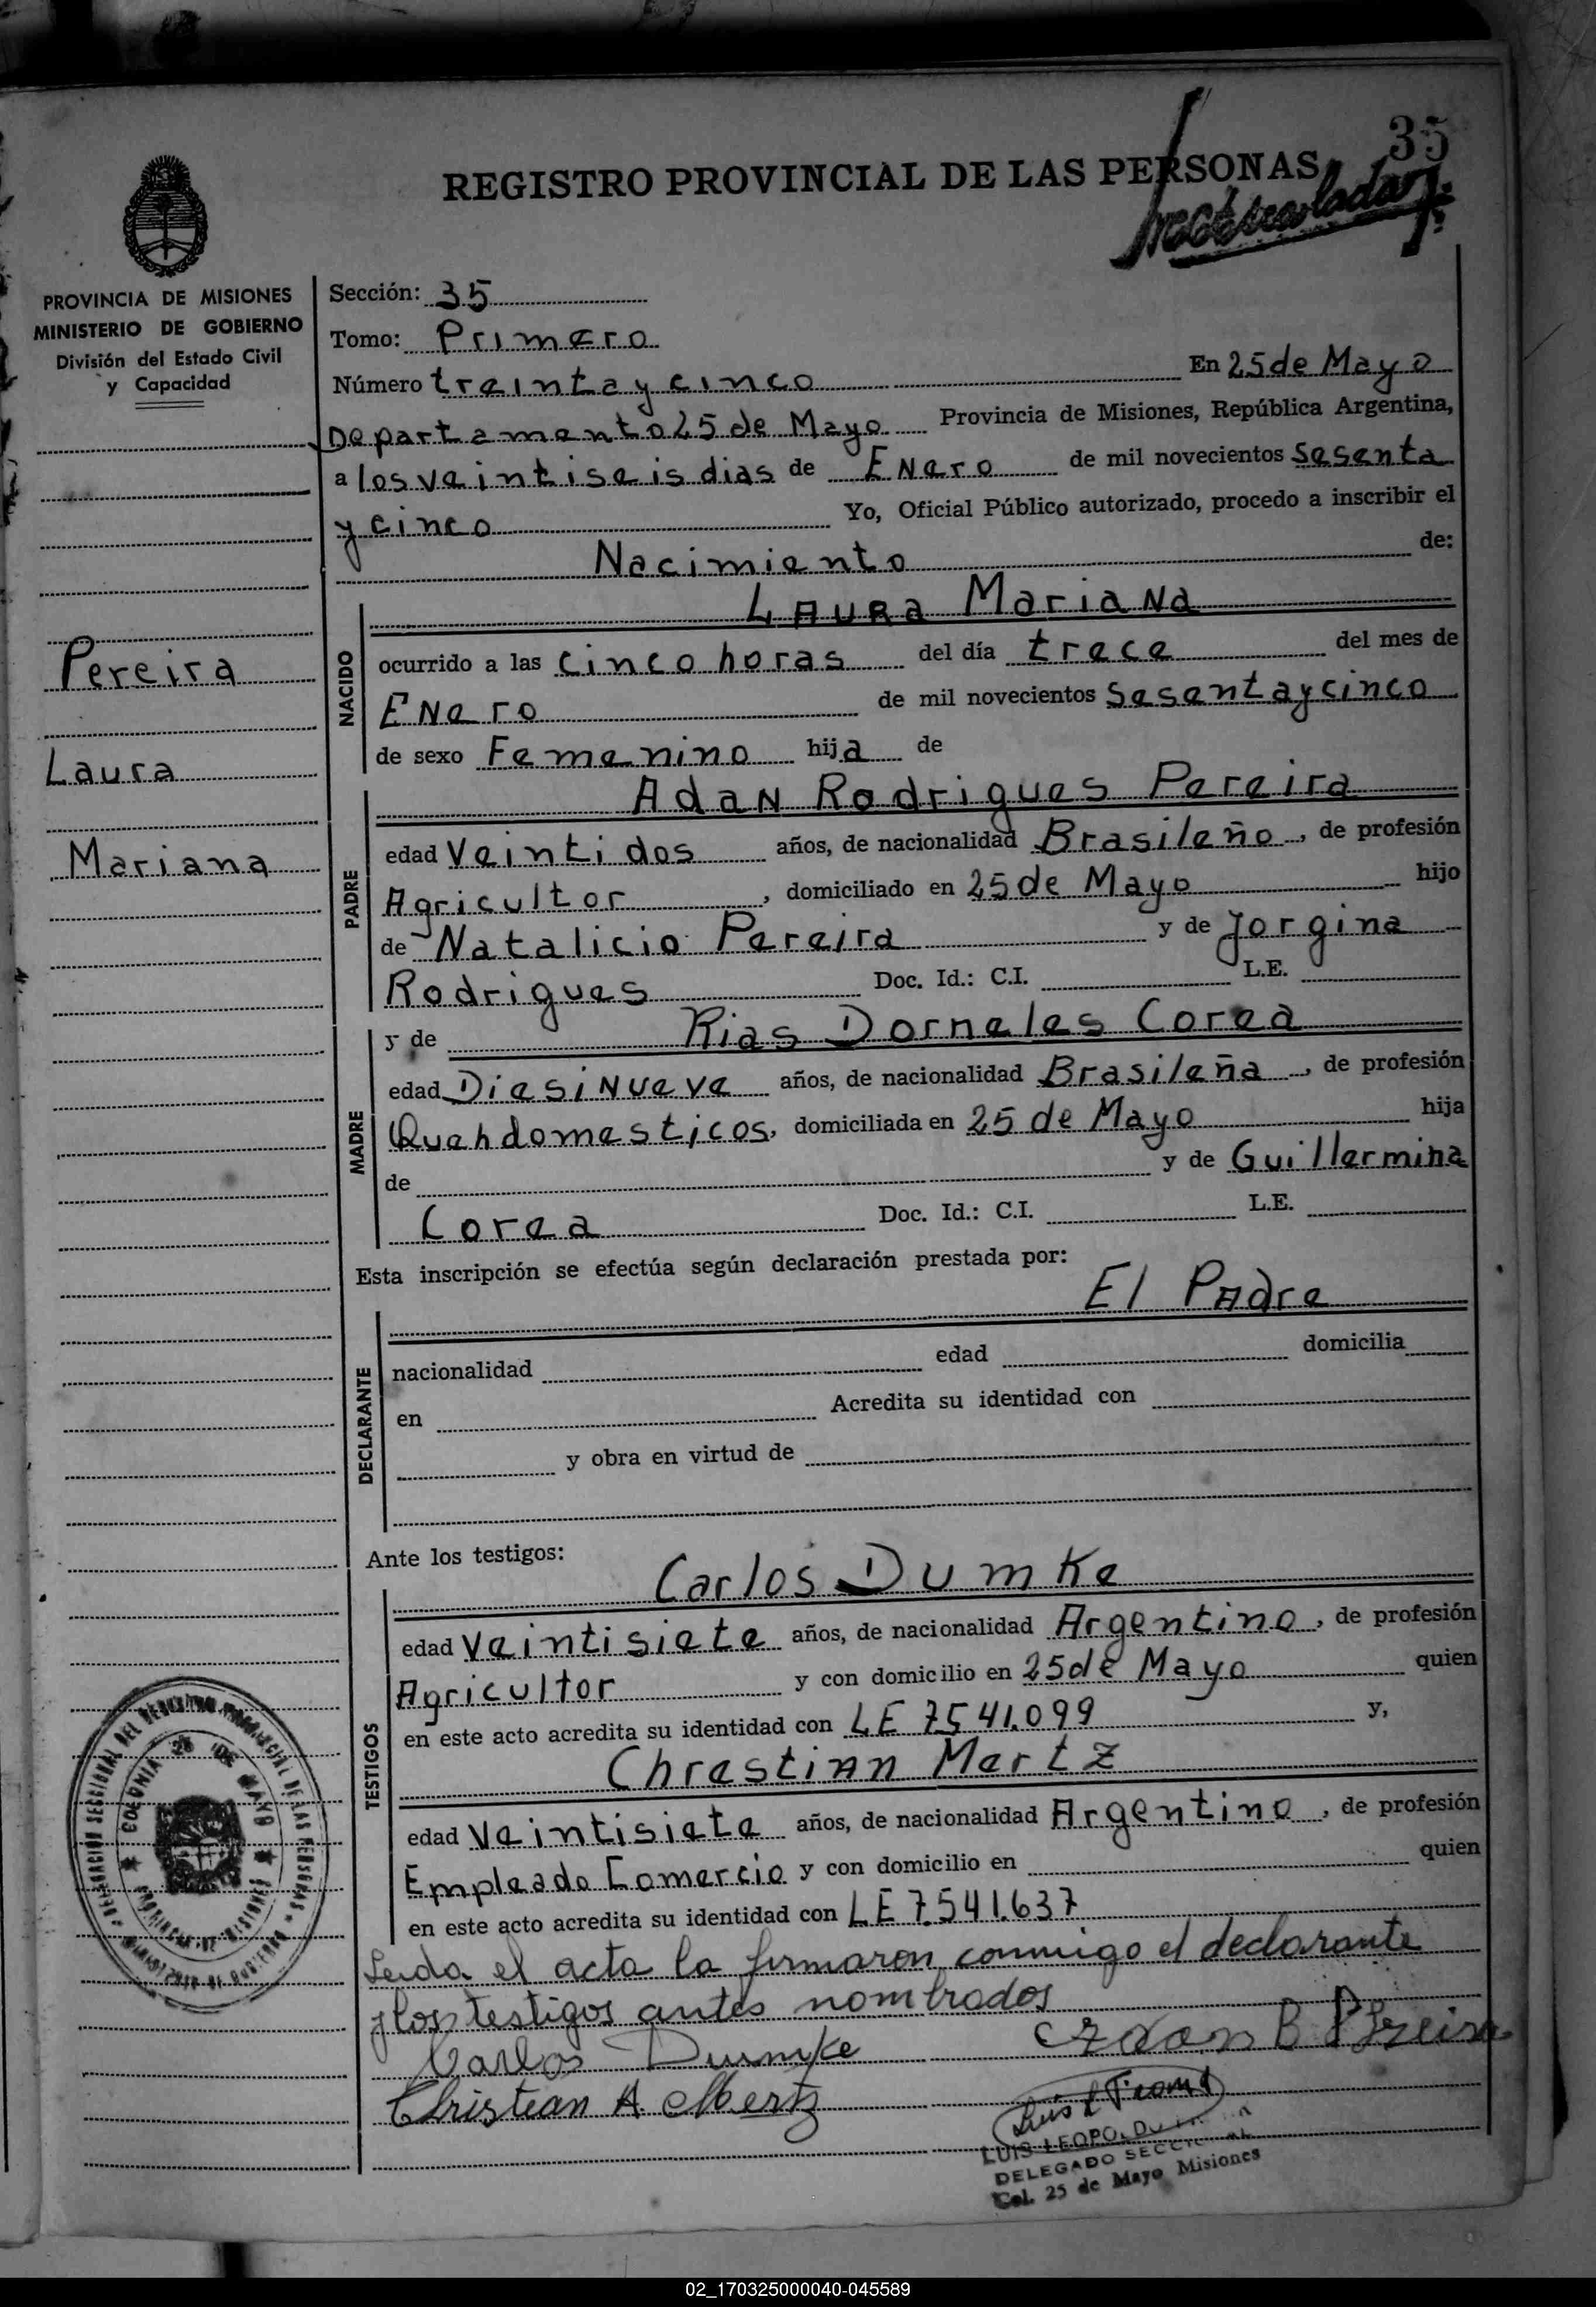 35
REGISTRO PROVINCIAL DE LAS PERSONAS
PROVINCIA DE MISIONES
MINISTERIO DE GOBIERNO
División del Estado Civil
y Capacidad
Pereira
Laura
Mariana
Sección: 35
Tomo: Primero
Número treinta y cinco En 25 de Mayo
Departamento 25 de Mayo Provincia de Misiones, República Argentina,
a los veintiseis dias de Enero de mil novecientos Sesenta
y cinco Yo, Oficial Público autorizado, procedo a inscribir el
Nacimiento de:
NACIDO
Laura Mariana
ocurrido a las cinco horas del día trece del mes de
Enero de mil novecientos Sesenta y cinco
de sexo Femenino hija de
PADRE
Adan Rodrigues Pereira
edad Veintidos años, de nacionalidad Brasileño, de profesión
Agricultor, domiciliado en 25 de Mayo hijo
de Natalicio Pereira y de Jorgina
Rodrigues Doc. Id.: C.I. L.E.
MADRE
y de Rias Dorneles Corea
edad Diesinueve años, de nacionalidad Brasileña, de profesión
Quehdomesticos, domiciliada en 25 de Mayo hija
de y de Guillermina
Corea Doc. Id.: C.I. L.E.
Esta inscripción se efectúa según declaración prestada por:
El Padre
DECLARANTE
nacionalidad edad domicilia
en Acredita su identidad con
y obra en virtud de
Ante los testigos:
TESTIGOS
Carlos Dumke
edad Veintisiete años, de nacionalidad Argentino, de profesión
Agricultor y con domicilio en 25 de Mayo quien
en este acto acredita su identidad con LE 7.541.099 y,
Chrestian Mertz
edad Veintisiete años, de nacionalidad Argentino, de profesión
Empleado Comercio y con domicilio en quien
en este acto acredita su identidad con LE 7.541.637
Leida el acta la firmaron conmigo el declarante
y los testigos antes nombrados
Carlos Dumke
Christian A. Mertz
LUIS LEOPOLDO
DELEGADO SECCIONAL
Col. 25 de Mayo Misiones
COLONIA 25 DE MAYO
PROVINCIA DE MISIONES
02_170325000040-045589